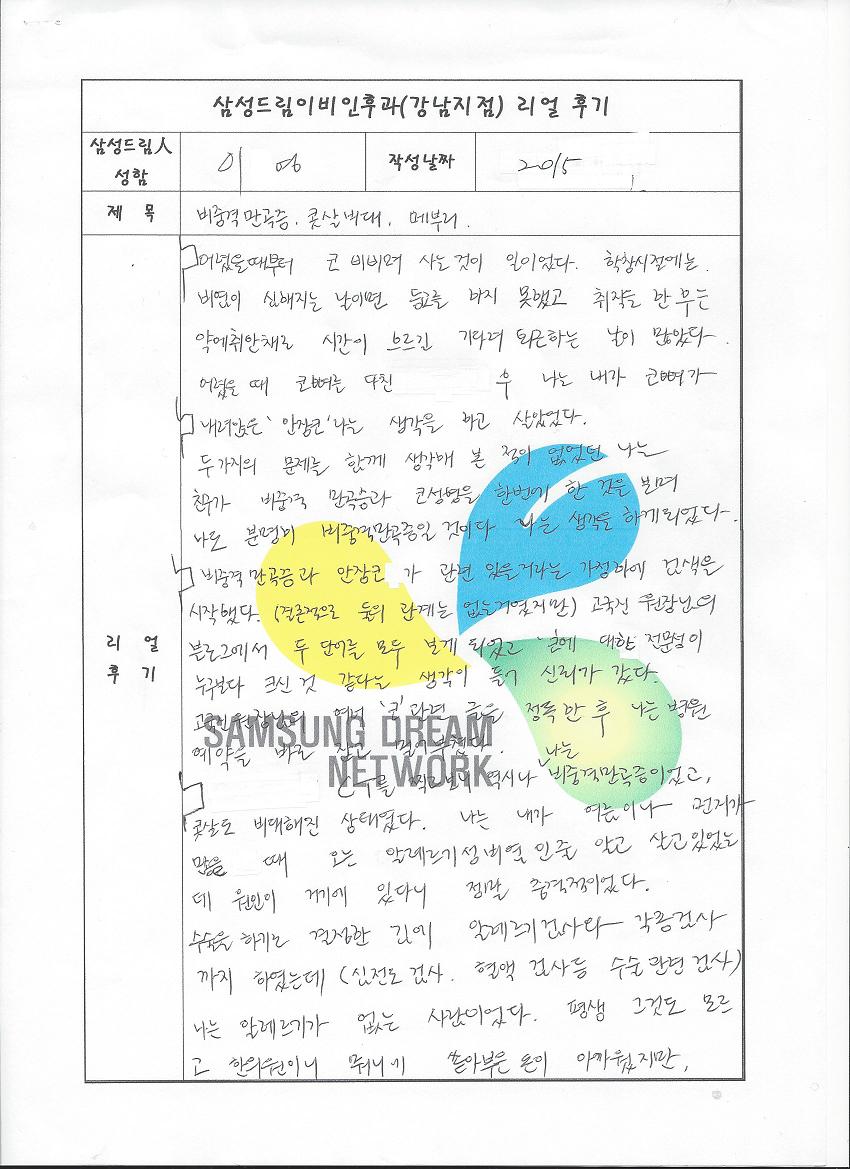 삼성드림이비인후과(강남지점) 리얼 후기
삼성드림人
성함
이 영
작성날짜
2015
제 목
비중격만곡증. 콧살비대. 메부리.
리 얼
후 기
어렸을때부터 코 비비며 사는것이 일이었다. 학창시절에는.
비염이 심해지는 날이면 등교를 하지 못했고 취직을 한 후는
약에취한채로 시간이 흐르길 기다려 퇴근하는 날이 많았다.
어렸을 때 코뼈를 다친 후 나는 내가 코뼈가
내려앉은 '안장코'라는 생각을 하고 살았었다.
두가지의 문제를 함께 생각해 본 적이 없었던 나는
친구가 비중격 만곡증과 코성형을 한번에 한 것을 보며
나도 분명히 비중격만곡증일 것이다 라는 생각을 하게되었다.
비중격만곡증과 안장코가 관련 있을거라는 가정하에 검색을
시작했다. (결론적으로 둘의 관계는 없는거였지만) 고국진 원장님의
블로그에서 두 단어를 모두 보게 되었고 '코'에 대한 전문성이
누구보다 크신 것 같다는 생각이 들어 신뢰가 갔다.
고국진원장님의 여러 '코'관련 글을 정독한 후 나는 병원
예약을 바로 잡고 나는
SAMSUNG DREAM
NETWORK
찍어보니 역시나 비중격만곡증이었고,
콧살도 비대해진 상태였다. 나는 내가 여름이나 먼지가
많을 때 오는 알레르기성비염 인줄 알고 살고있었는
데 원인이 거기에 있다니 정말 충격적이었다.
수술을 하기로 결정한 김에 알레르기검사와 각종검사
까지 하였는데 (심전도 검사. 혈액 검사등 수술관련 검사)
나는 알레르기가 없는 사람이었다. 평생 그것도 모르
고 한의원이니 뭐니에 쏟아부은 돈이 아까웠지만,